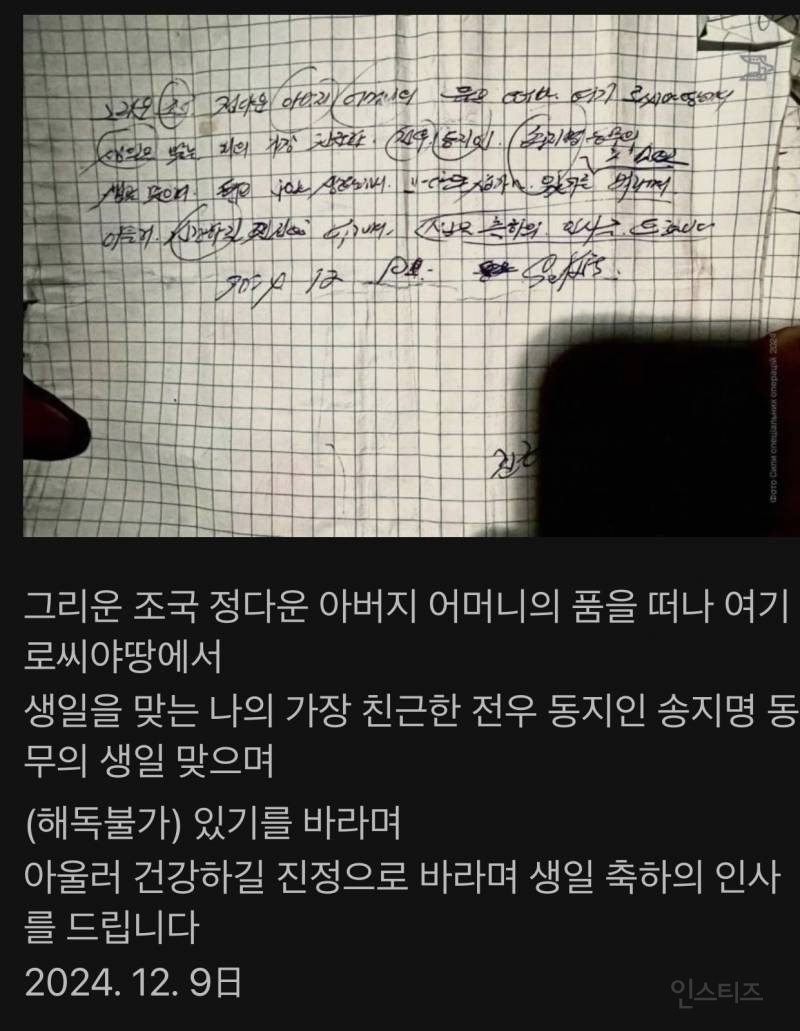 그리운 조 정다운 아버지 어머니의 품을 떠나 여기 로씨야땅에서
생일을 맞는 나의 가장 친근한 전우 동지인 송지명 동무의
생일
바라며
아울러 건강하길 진정으로 바라며 생일 축하의 인사를 드립니다
Фото Сили спеціальних операцій 2024
그리운 조국 정다운 아버지 어머니의 품을 떠나 여기
로씨야땅에서
생일을 맞는 나의 가장 친근한 전우 동지인 송지명 동
무의 생일 맞으며
(해독불가) 있기를 바라며
아울러 건강하길 진정으로 바라며 생일 축하의 인사
를 드립니다
2024. 12. 9日
인스티즈